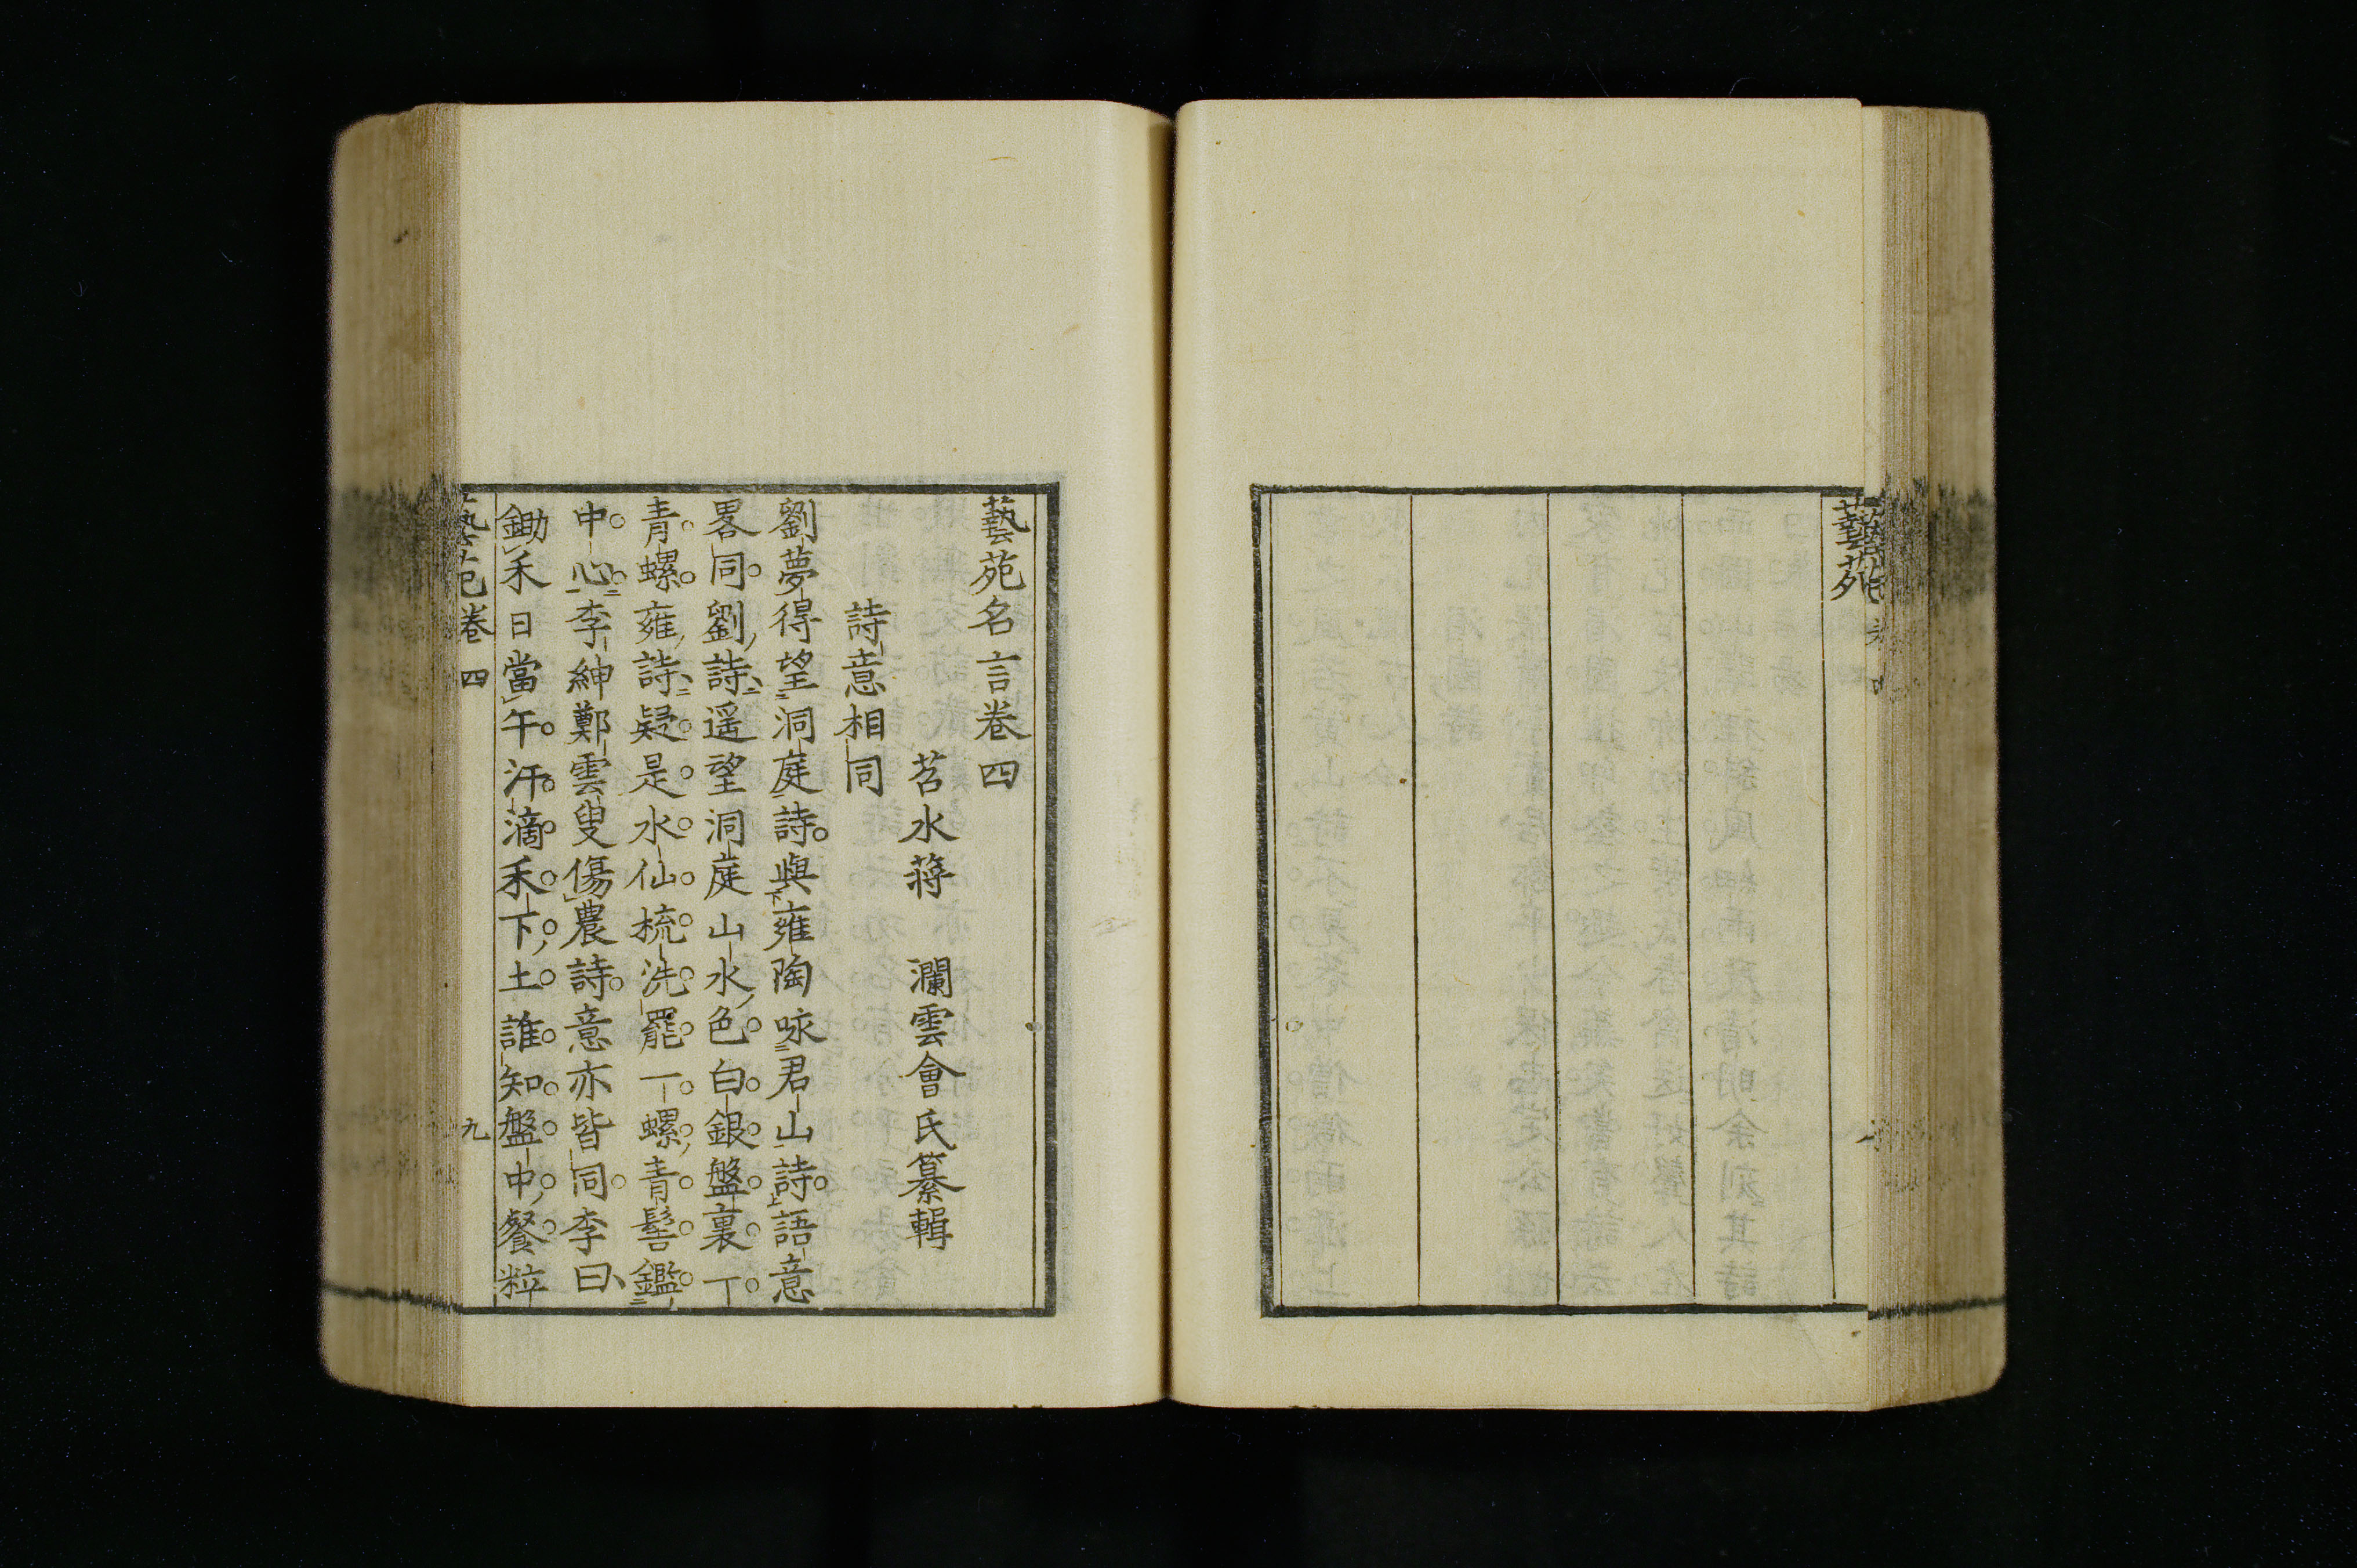 藝苑
藝苑名言卷四
苕水蔣　瀾雲會氏纂輯
詩意相同
劉夢得望洞庭詩與雍陶咏君山詩語意
畧同劉詩遥望洞庭山水色白銀盤裏一
青螺雍詩疑是水仙梳洗罷一螺青髻鑑
中心李紳鄭雲叟傷農詩意亦皆同李曰
鋤禾日當午汗滴禾下土誰知盤中餐粒
藝苑卷四
九